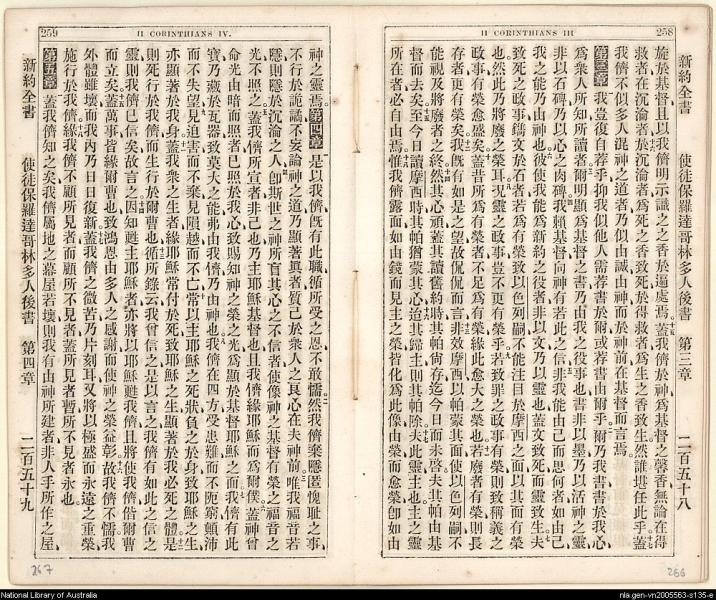 258
II CORINTHIANS III
新約全書
使徒保羅達哥林多人後書
第三章
二百五十八
施於基督且以我儕明示識之之香於遍處焉蓋我儕於神爲基督之馨香無論在得
救者在沉淪者於沉淪者爲死之香致死於得救者爲生之香致生然誰堪任此乎蓋
我儕不似多人混神之道者乃似由誠由神而於神前在基督而言焉
第三章 我豈復自荐乎抑我似他人需荐書於爾或荐書由爾乎爾乃我書書於我心
爲衆人所知所讀者爾明顯爲基督之書乃由我之役事也書非以墨乃以活神之靈
非以石碑乃以心之肉碑我賴基督向神有若此之信非我能由己而思何者如由己
我之能乃由神也彼使我能爲新約之役者非以文乃以靈也蓋文致死而靈致生夫
致死之政事鐫文於石者若爲有榮致以色列嗣不能注目於摩西之面以其面有榮
也然此乃將廢之榮耳况靈之政事豈不更有榮乎若致罪之政事有榮則致稱義之
政事有榮愈盛矣蓋昔所爲有榮者不足爲有榮緣此愈大之榮也若廢者有榮則長
存者更有榮矣我旣有如是之望故侃侃而言非效摩西以帕蒙其面使以色列嗣不
能視及將廢者之終然其心頑蓋其讀舊約時其帕尙存迄今日而未啓夫其帕由基
督而去矣至今日讀摩西時其帕猶蒙其心迨其歸主則其帕除夫此靈主也主之靈
所在者必自由焉惟我儕露面如由鏡而見主之榮皆化爲此像由榮而愈榮卽如由
266
259
II CORINTHIANS IV.
神之靈焉第四章 是以我儕旣有此職循所受之恩不敢懦然我儕棄隱匿愧耻之事
不行於詭譎不妄論神之道乃顯著眞者質己於衆人之良心在夫神前唯我福音若
隱則隱於沉淪之人卽斯世之神所盲其心之不信者使像神之基督有榮之福音之
光不照之蓋我儕所宣者非己也乃主耶穌基督也且我儕緣耶穌而爲爾僕蓋神曾
命光由暗而照者已照於我心致賜知神之榮之光爲顯於基督耶穌之面我儕有此
寶乃藏於瓦器致莫大之能弗由我儕乃由神也我儕在四方受患難而不阨窮顚沛
而不失望見迫害而不棄見隕越而不亡常以主耶穌之死狀負之於身致耶穌之生
亦顯著於我身蓋我衆之生者緣耶穌常付於死致耶穌之生顯著於我必死之體是
則死行於我儕而生行於爾曹也循所錄云我曾信之是以言之我儕有如此之信之
靈則我儕已信矣故言之因知甦主耶穌者亦將以耶穌甦我儕且將使我儕偕爾曹
而立矣蓋萬事皆緣爾曹也致鴻恩由多人之感謝而使神之榮益彰故我儕不懦我
外體雖壞而我內乃日日復新蓋我儕之微苦乃片刻耳又將以極盛而永遠之重榮
施行於我儕緣我儕不顧所見者而顧所不見者蓋所見者暫所不見者永也
第五章 蓋我儕知之矣我儕屬地之幕屋若壞則我有由神所建者非人手所作之屋
新約全書
使徒保羅達哥林多人後書
第四章
二百五十九
267
National Library of Australia
nla.gen-vn2005563-s135-e